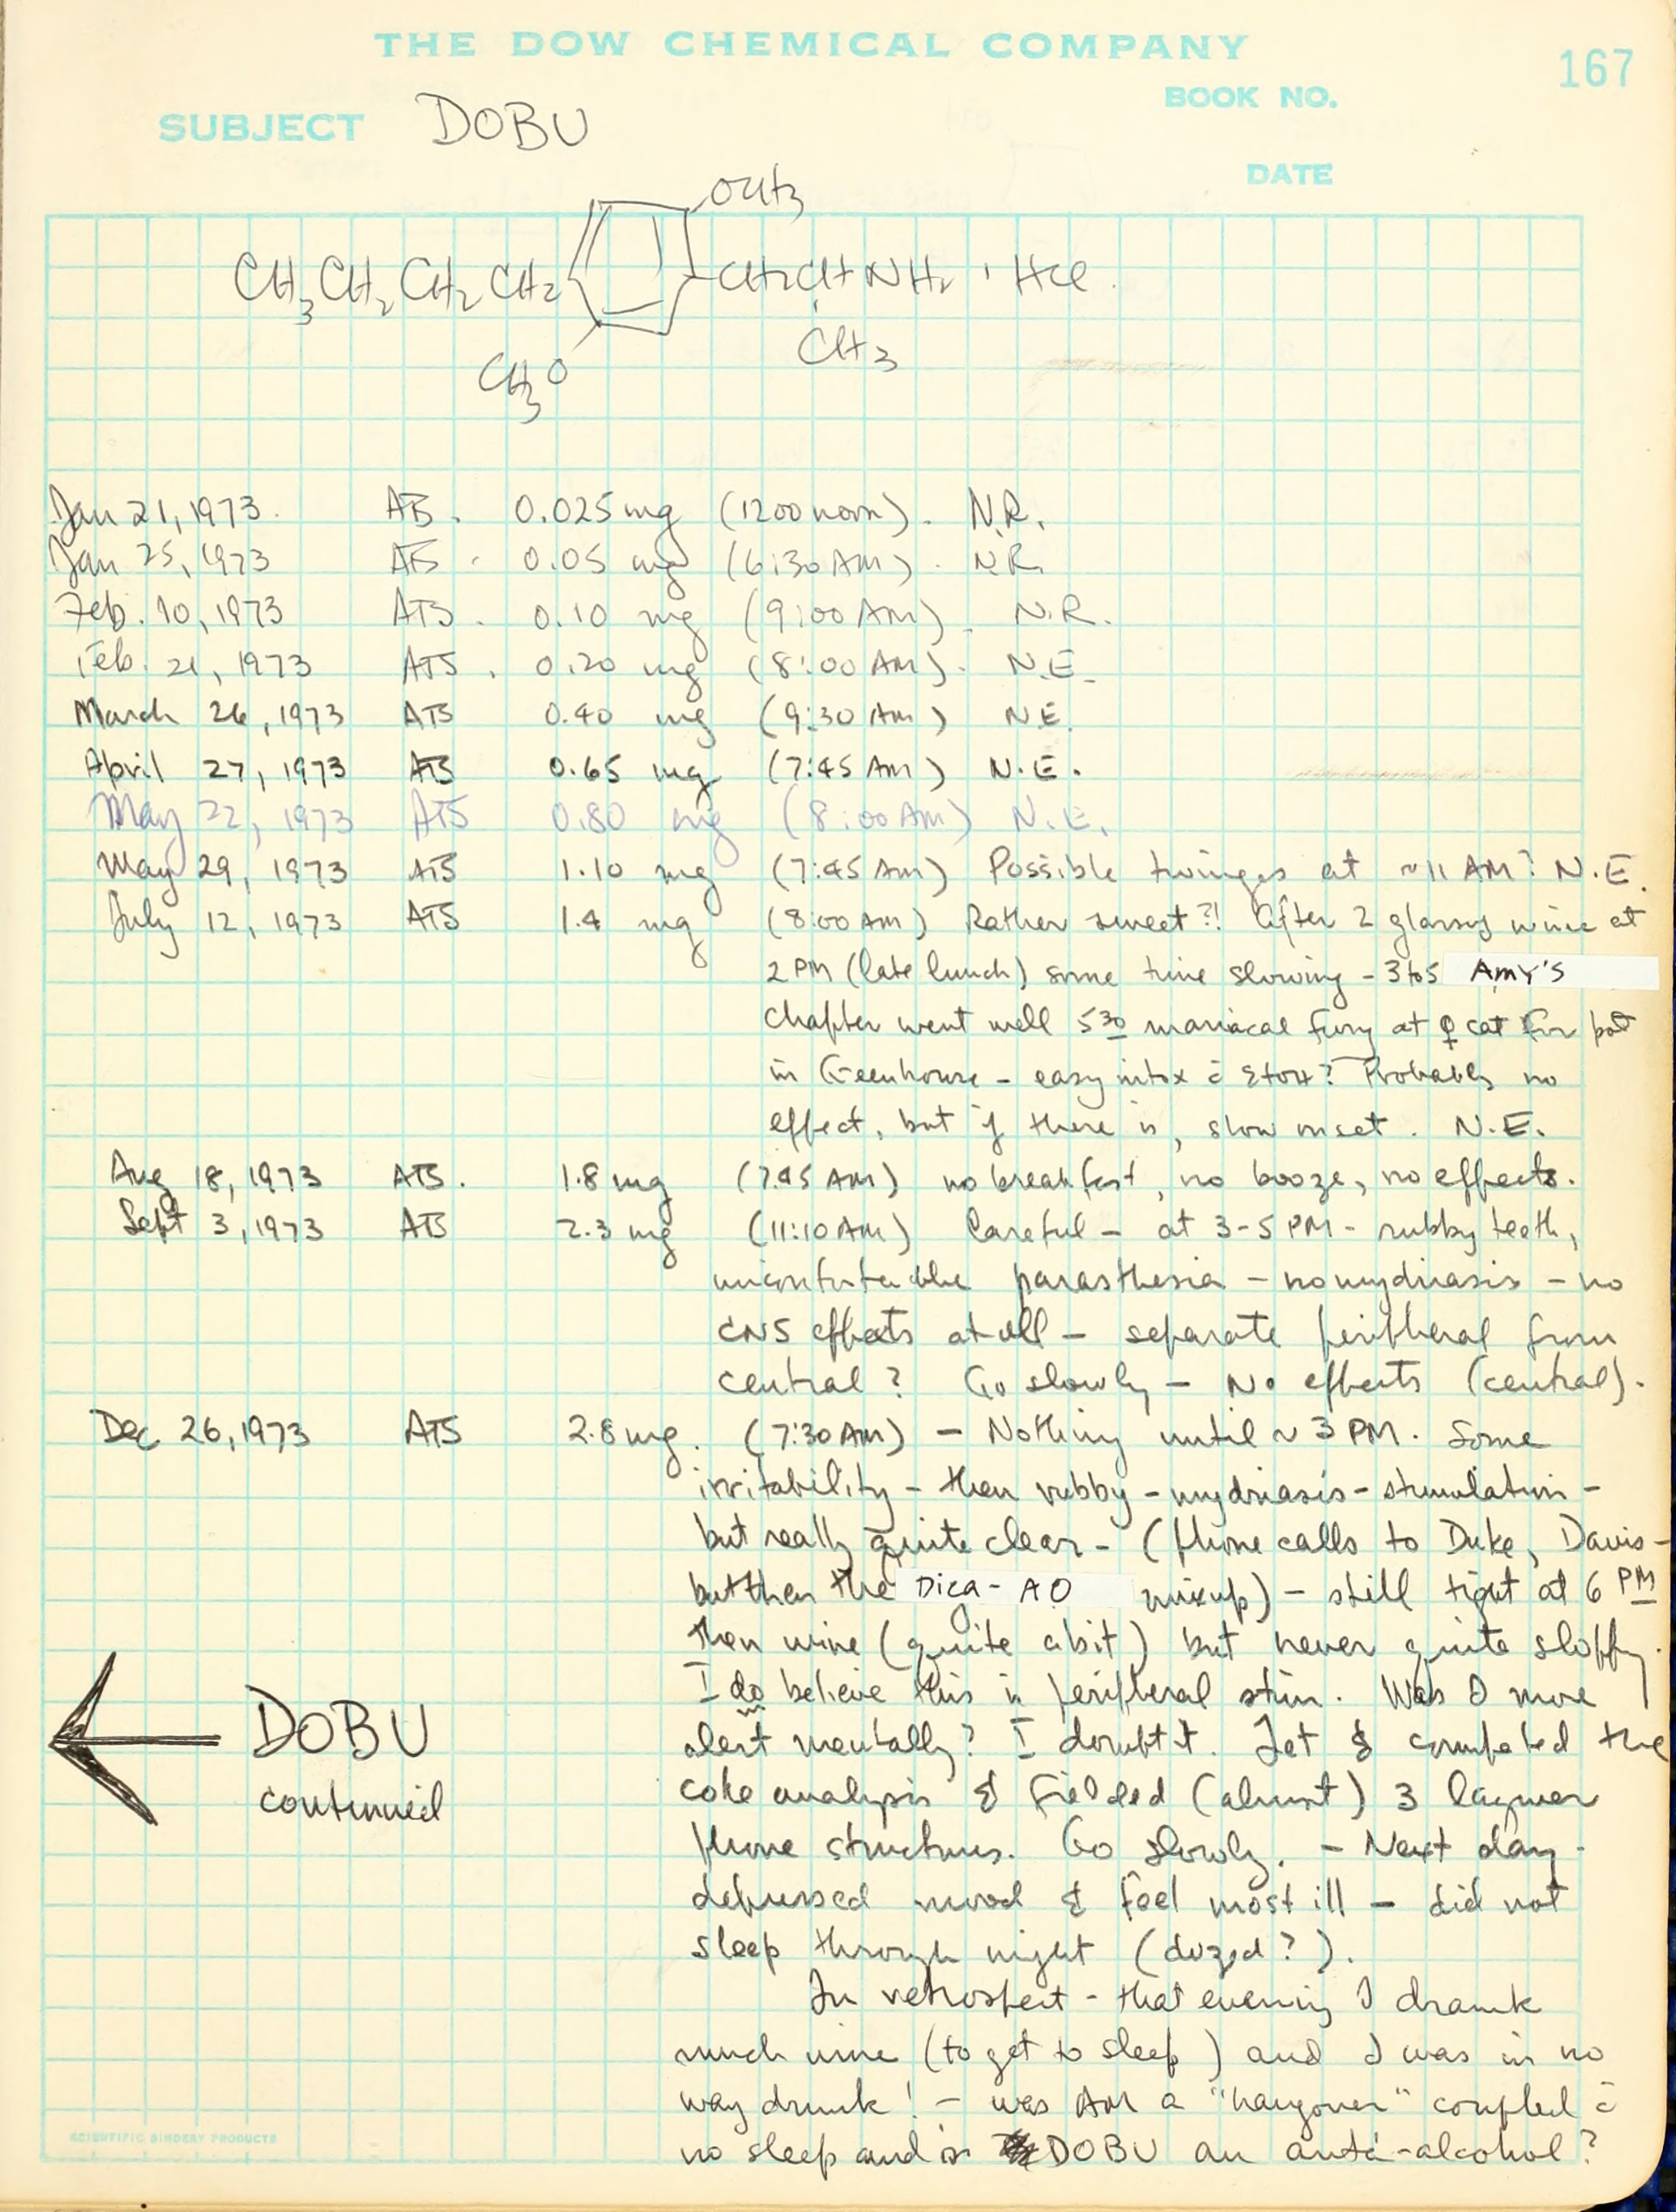 THE DOW CHEMICAL COMPANY
167
BOOK NO.
SUBJECT DOBU
DATE
OCH3
CH3CH2CH2CH2 CH2CHNH2 · HCl
CH3
CH3O
Jan 21, 1973. ATS. 0.025 mg (1200 noon). N.R.
Jan 25, 1973 ATS. 0.05 mg (6:30 AM). N.R.
Feb. 10, 1973 ATS. 0.10 mg (9:00 AM). N.R.
Feb. 21, 1973 ATS. 0.20 mg (8:00 AM). N.E.
March 26, 1973 ATS 0.40 mg (9:30 AM) N.E.
April 27, 1973 ATS 0.65 mg (7:45 AM) N.E.
May 22, 1973 ATS 0.80 mg (8:00 AM) N.E.
May 29, 1973 ATS 1.10 mg (7:45 AM) Possible twinges at ~11 AM? N.E.
July 12, 1973 ATS 1.4 mg (8:00 AM) Rather sweet?! After 2 glasses wine at
2 PM (late lunch) some time slowing - 3 to 5 AMY'S
chapter went well 530 maniacal fury at ♀ cat for
in Greenhouse - easy intox c̄ EtOH? Probably no
effect, but if there is, slow onset. N.E.
Aug 18, 1973 ATS. 1.8 mg (7:45 AM) no breakfast, no booze, no effects.
Sept 3, 1973 ATS 2.3 mg (11:10 AM) Careful - at 3-5 PM - rubby teeth,
uncomfortable parasthesia - no mydriasis - no
CNS effects at all - separate peripheral from
central? Go slowly - No effects (central).
Dec 26, 1973 ATS 2.8 mg. (7:30 AM) - Nothing until ~ 3 PM. Some
irritability - then rubby - mydriasis - stimulation -
but really quite clear - (phone calls to Duke, Davis -
but then the Dica- AO mixup) - still tight at 6 PM
then wine (quite a bit) but never quite sloppy.
I do believe this is peripheral stim. Was I more
alert mentally? I doubt it. Yet I completed the
coke analysis & fielded (almost) 3 lawyer
phone structures. Go slowly. - Next day -
depressed mood & feel most ill - did not
sleep through night (dozed?).
In retrospect - that evening I drank
much wine (to get to sleep) and I was in no
way drunk! - was AM a "hangover" coupled c̄
no sleep and is DOBU an anti-alcohol?
DOBU
continued
SCIENTIFIC BINDERY PRODUCTS